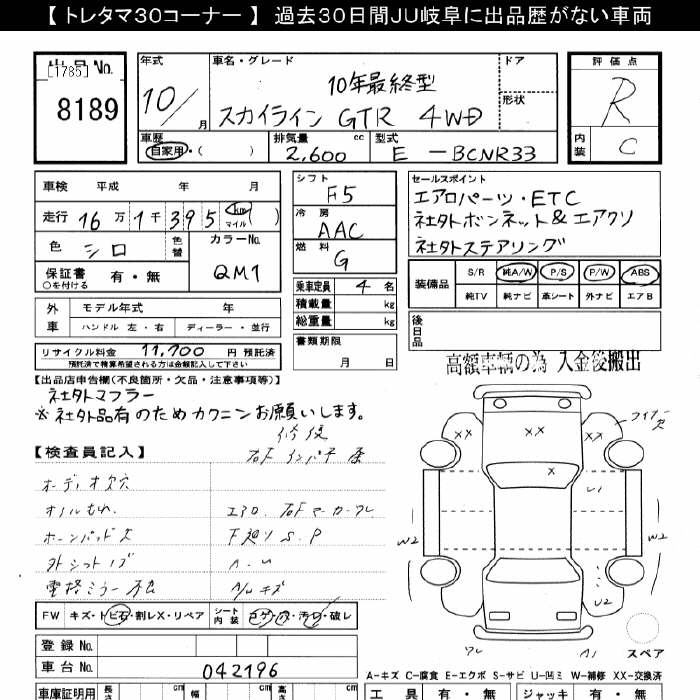 【トレタマ30コーナー】 過去30日間JU岐阜に出品歴がない車両
出品No.
[1785]
8189
年式
10/
月
車名・グレード
10年最終型
スカイライン GTR 4WD
ドア
形状
評価点
R
内装
C
車歴
自家用・( )
排気量 cc
2,600
型式
E - BCNR33
車検 平成 年 月
走行 16万1千395 km マイル ( )
色 シロ 色替
カラーNo.
QM1
保証書 有・無
○を付ける
シフト
F5
冷房
AAC
燃料
G
乗車定員 4 名
積載量 kg
総重量 kg
書類期限
月 日
セールスポイント
エアロパーツ・ETC
社外ボンネット&エアクリ
社外ステアリング
装備品
S/R 純A/W P/S P/W ABS
純TV 純ナビ 革シート 外ナビ エアB
後日品
外車
モデル年式 年
ハンドル 左・右 ディーラー・並行
リサイクル料金 11,700 円 預託済
預託済で精算希望される方は金額記入して下さい
高額車輌の為 入金後搬出
【出品店申告欄(不良箇所・欠品・注意事項等)】
社外マフラー
※社外品有のためカクニンお願いします。
【検査員記入】
修復
オーディオ欠穴
エアロ
下廻り S.P
A.U
A/W キズ
FW キズ・トビ石・割レX・リペア
シート内装 コゲ・穴・汚レ・破レ
登録No.
車台No. 042196
XX XX XX
X
U1
W2
W2
U2
A1
スペア
A-キズ C-腐食 E-エクボ S-サビ U-凹ミ W-補修 XX-交換済
車庫証明用 長さ cm 幅 cm 高さ cm
工具 有・無 ジャッキ 有・無